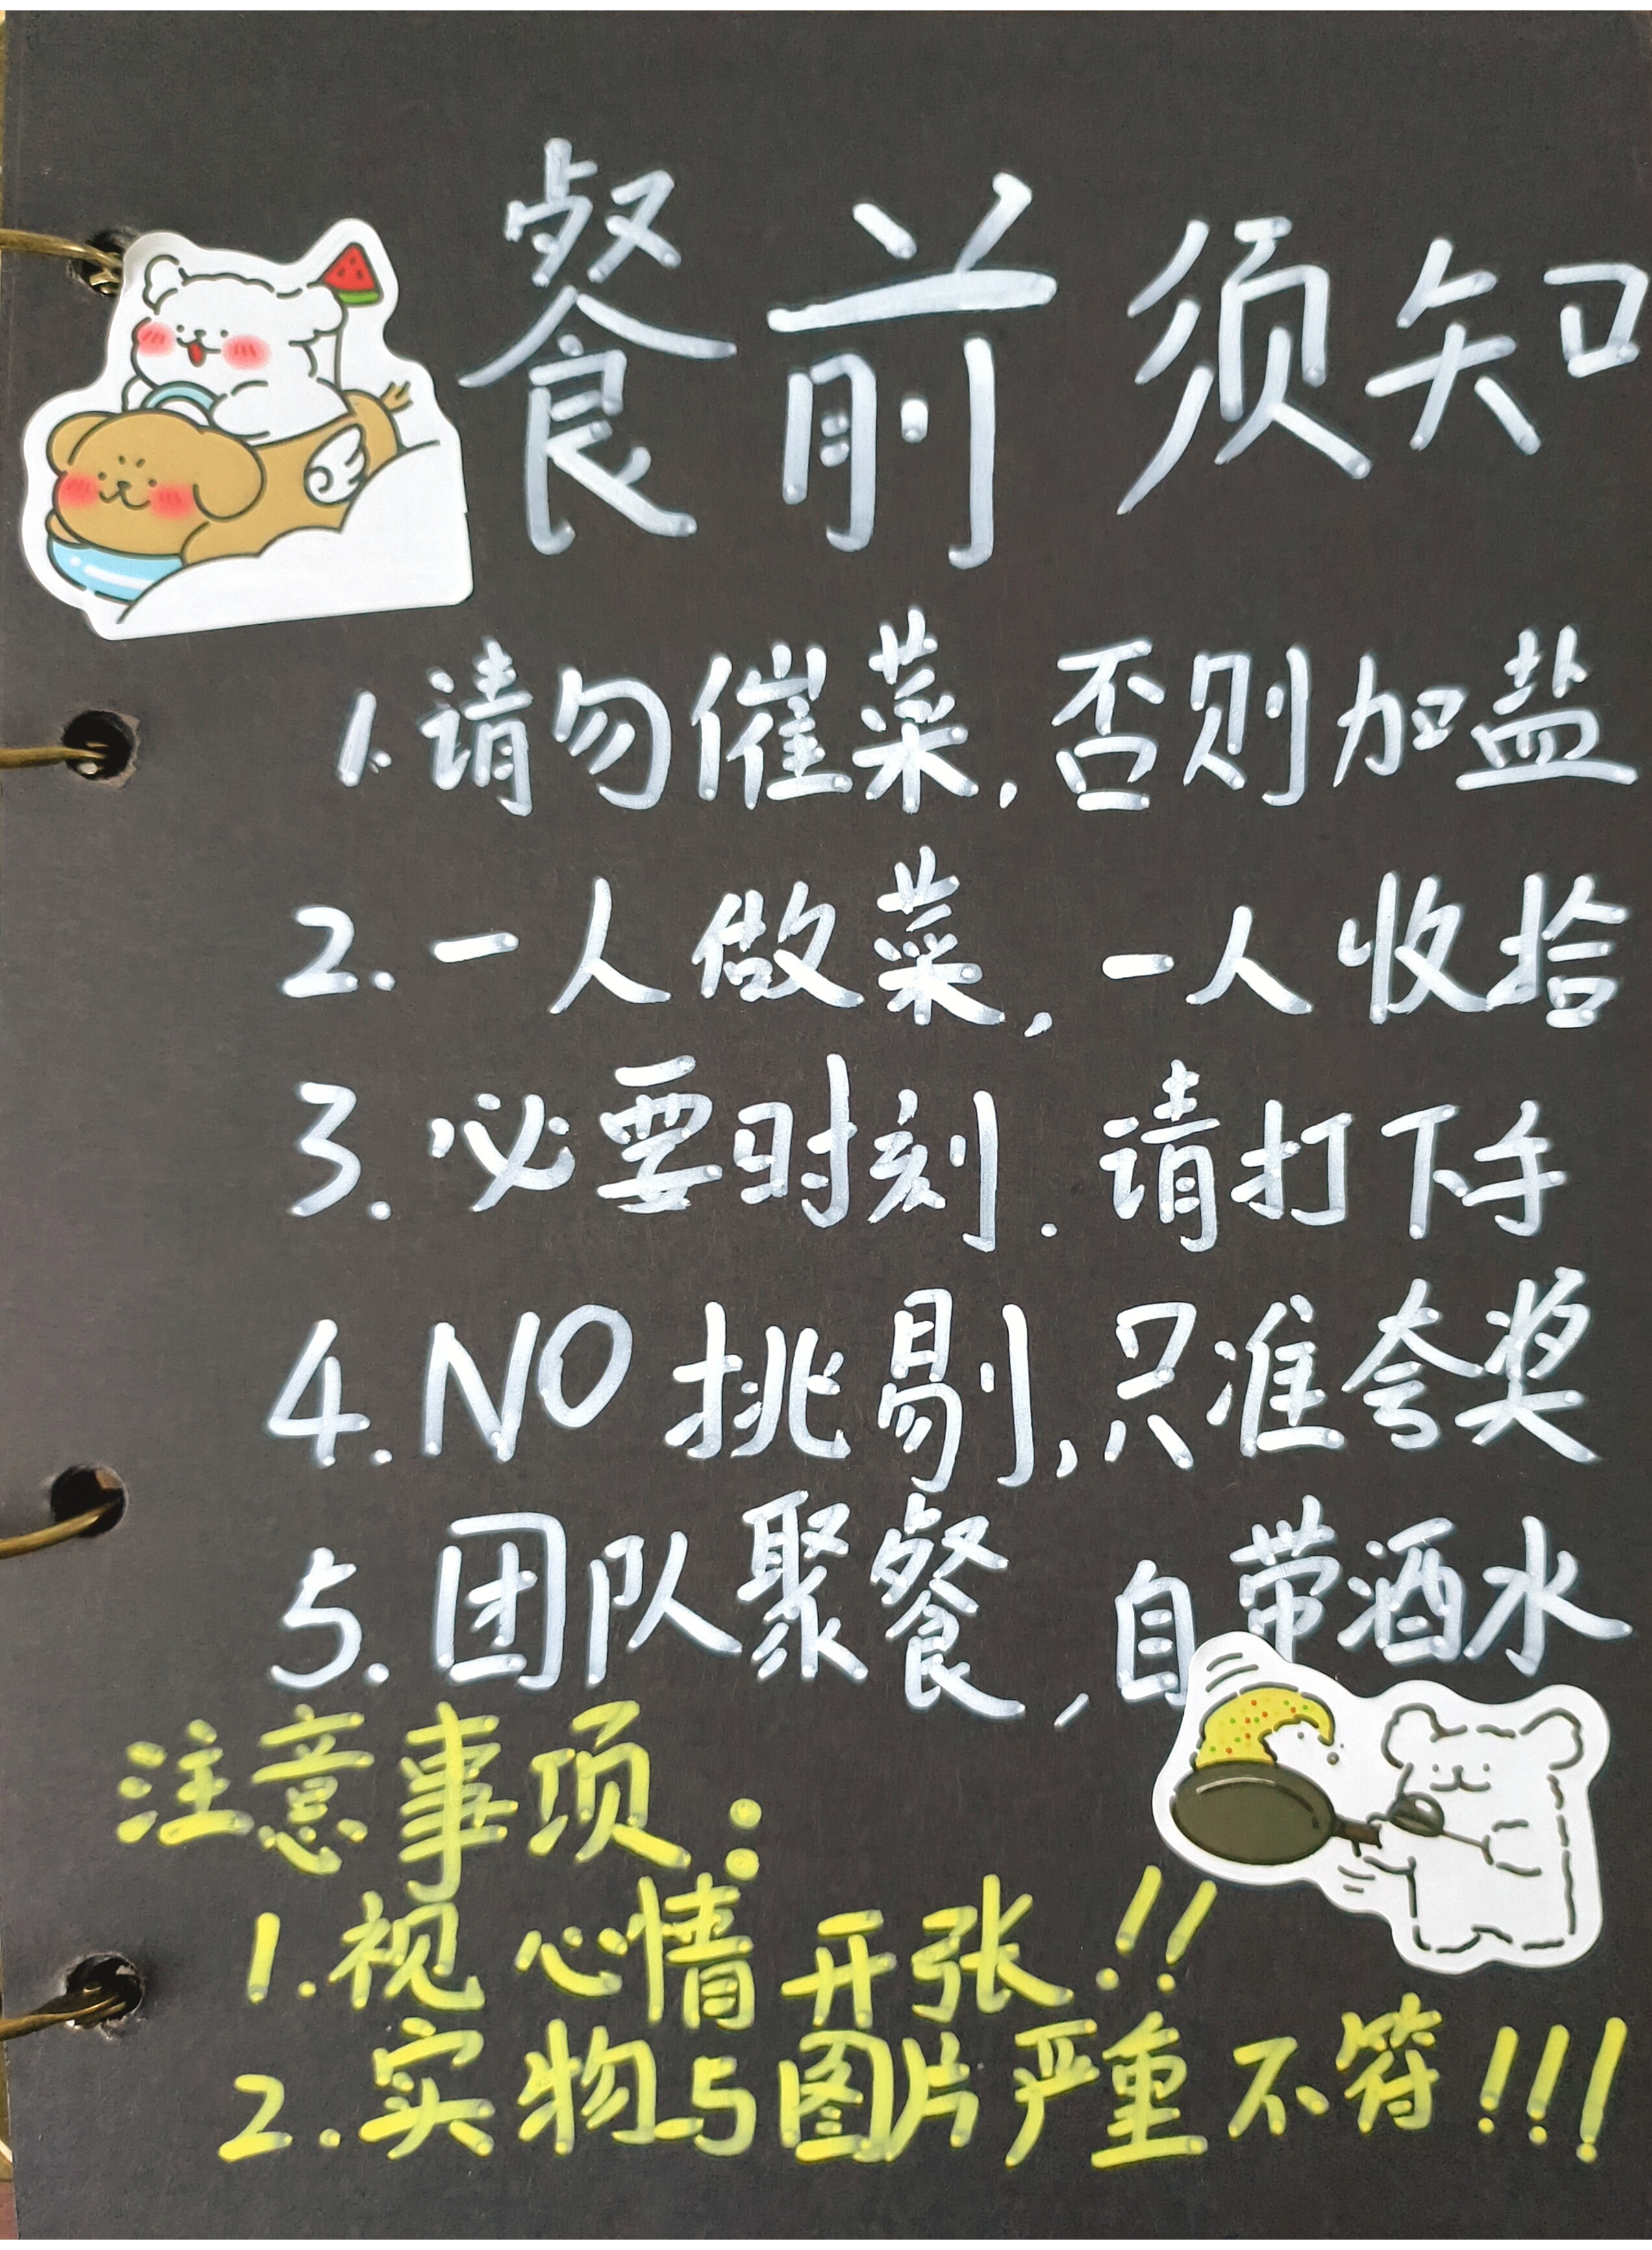 餐前须知
1.请勿催菜,否则加盐
2.一人做菜,一人收拾
3.必要时刻.请打下手
4.NO挑剔,只准夸奖
5.团队聚餐,自带酒水
注意事项:
1.视心情开张!!
2.实物与图片严重不符!!!